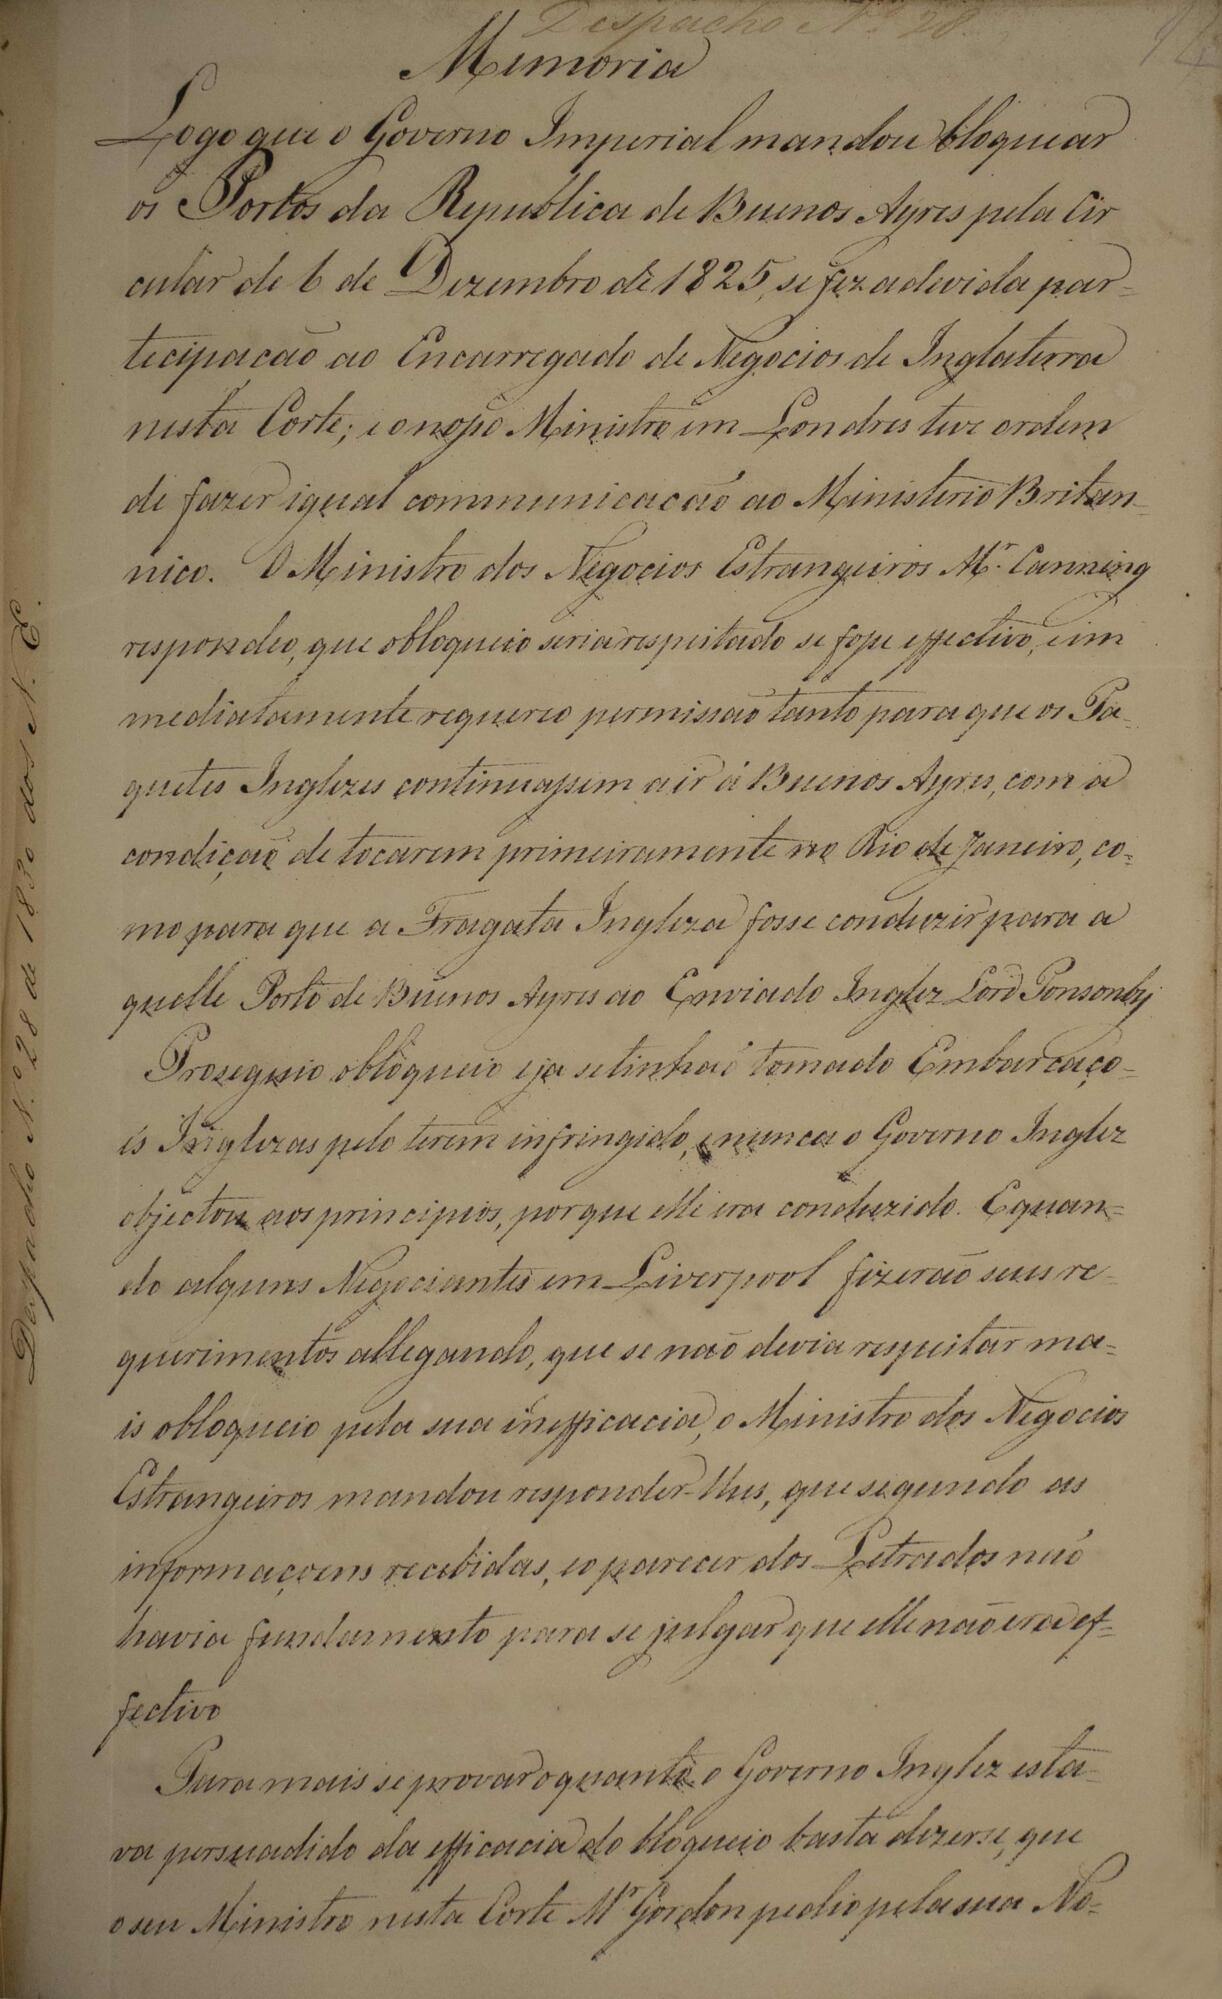 Despacho Nº 28
Memoria
Logo que o Governo Imperial mandou bloquear
os Portos da Republica de Buenos Ayres pela Cir
cular de 6 de Dezembro de 1825, se fez a devida par-
tecipacaõ ao Encarregado de Negocios de Inglaterra
nesta Corte; e o nosso Ministro em Londres teve ordem
de fazer igual communicacaõ ao Ministerio Britan-
nico. O Ministro dos Negocios Estrangeiros Mr. Canning
respondeo, que o bloqueio seria respeitado se fosse effectivo, e im
mediatamente requereo permissaõ tanto para que os Pa-
quetes Inglezes continuassem a ir á Buenos Ayres, com a
condiçaõ de tocarem primeiramente no Rio de Janeiro, co-
mo para que a Fragata Ingleza fosse conduzir para a
quelle Porto de Buenos Ayres ao Enviado Inglez Lord Ponsonby
Proseguio o bloqueio e ja se tinhaõ tomado Embarcaço-
es Inglezas pelo terem infringido, e nunca o Governo Inglez
objectou aos principios, porque elle era conduzido. E quan-
do alguns Negociantes em Liverpool fizeraõ seus re-
querimentos allegando, que se naõ devia respeitar ma-
is o bloqueio pela sua inefficacia, o Ministro dos Negocios
Estrangeiros mandou responder-lhes, que segundo as
informaçoens recebidas, e o parecer dos Letrados naõ
havia fundamento para se julgar que elle naõ era ef-
fectivo
Para mais se provar o quanto o Governo Inglez esta-
va persuadido da efficacia do bloqueio basta dizerse, que
o seu Ministro nesta Corte Mr Gordon pedio pela sua No-
Despacho N.º 28 de 1830 dos N. E.